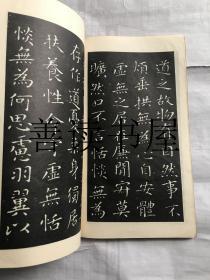 道之故物有自然事不
煩垂拱無為心自安體
虛無之居在廉間寂莫
曠然口不言恬惔無為
作道憂柔身獨居
扶養性命守虛無恬
惔無為何思慮羽翼以
书屋